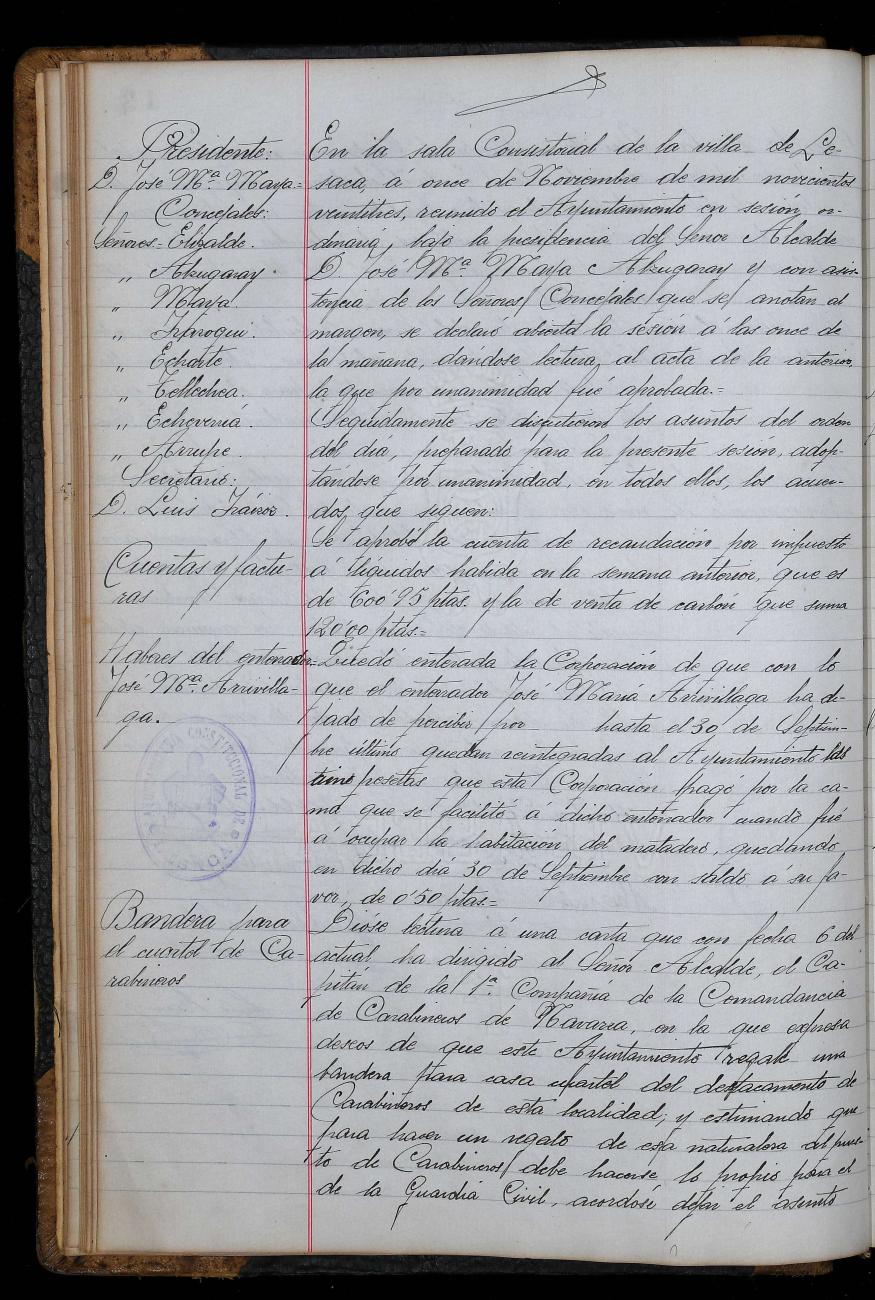 Presidente:
D. José Mª Maya=
Concejales:
Señores= Elizalde.
„ Alzugaray.
„ Maya.
„
„ Echarte.
„ Tellechea.
„ Echeverriá.
„ Arrupe.
Secretario:
D. Luis Iráizoz.
En la sala Consistorial de la villa de Le-
saca, á once de Noviembre de mil novecientos
veintitres, reunido el Ayuntamiento en sesión or-
dinaria, bajo la presidencia del Señor Alcalde
D. José Mª Maya Alzugaray y con asis-
tencia de los Señores Concejales que se anotan al
margen, se declaró abierta la sesión á las once de
la mañana, dandose lectura al acta de la anterior,
la que por unanimidad fué aprobada.=
Seguidamente se discutieron los asuntos del orden
del día, preparado para la presente sesión, adop-
tándose por unanimidad, en todos ellos, los acuer-
dos que siguen:
Cuentas y factu-
ras
Se aprobó la cuenta de recaudación por impuesto
á líquidos habida en la semana anterior, que es
de 600'95 ptas. y la de venta de carbón que suma
120'00 ptas.=
Haberes del enterrador=
José Mª Arrivilla-
ga.
Quedó enterada la Corporación de que con lo
que el enterrador José María Arrivillaga ha de-
jado de percibir por hasta el 30 de Septiem-
bre último quedan reintegradas al Ayuntamiento las
pesetas que esta Corporación pagó por la ca-
ma que se facilitó á dicho enterrador cuando fué
á ocupar la habitación del matadero, quedando
en dicho día 30 de Septiembre con saldo á su fa-
vor, de 0'50 ptas.=
Bandera para
el cuartel de Ca-
rabineros
Dióse lectura á una carta que con fecha 6 del
actual ha dirigido al Señor Alcalde, el Ca-
pitán de la 1ª Compañía de la Comandancia
de Carabineros de Navarra, en la que expresa
deseos de que este Ayuntamiento regale una
bandera para casa cuartel del destacamento de
Carabineros de esta localidad; y estimando que
para hacer un regalo de esa naturaleza al pues-
to de Carabineros debe hacerse lo propio para el
de la Guardia Civil, acordose dejar el asunto
CONSTITUCIONAL DE